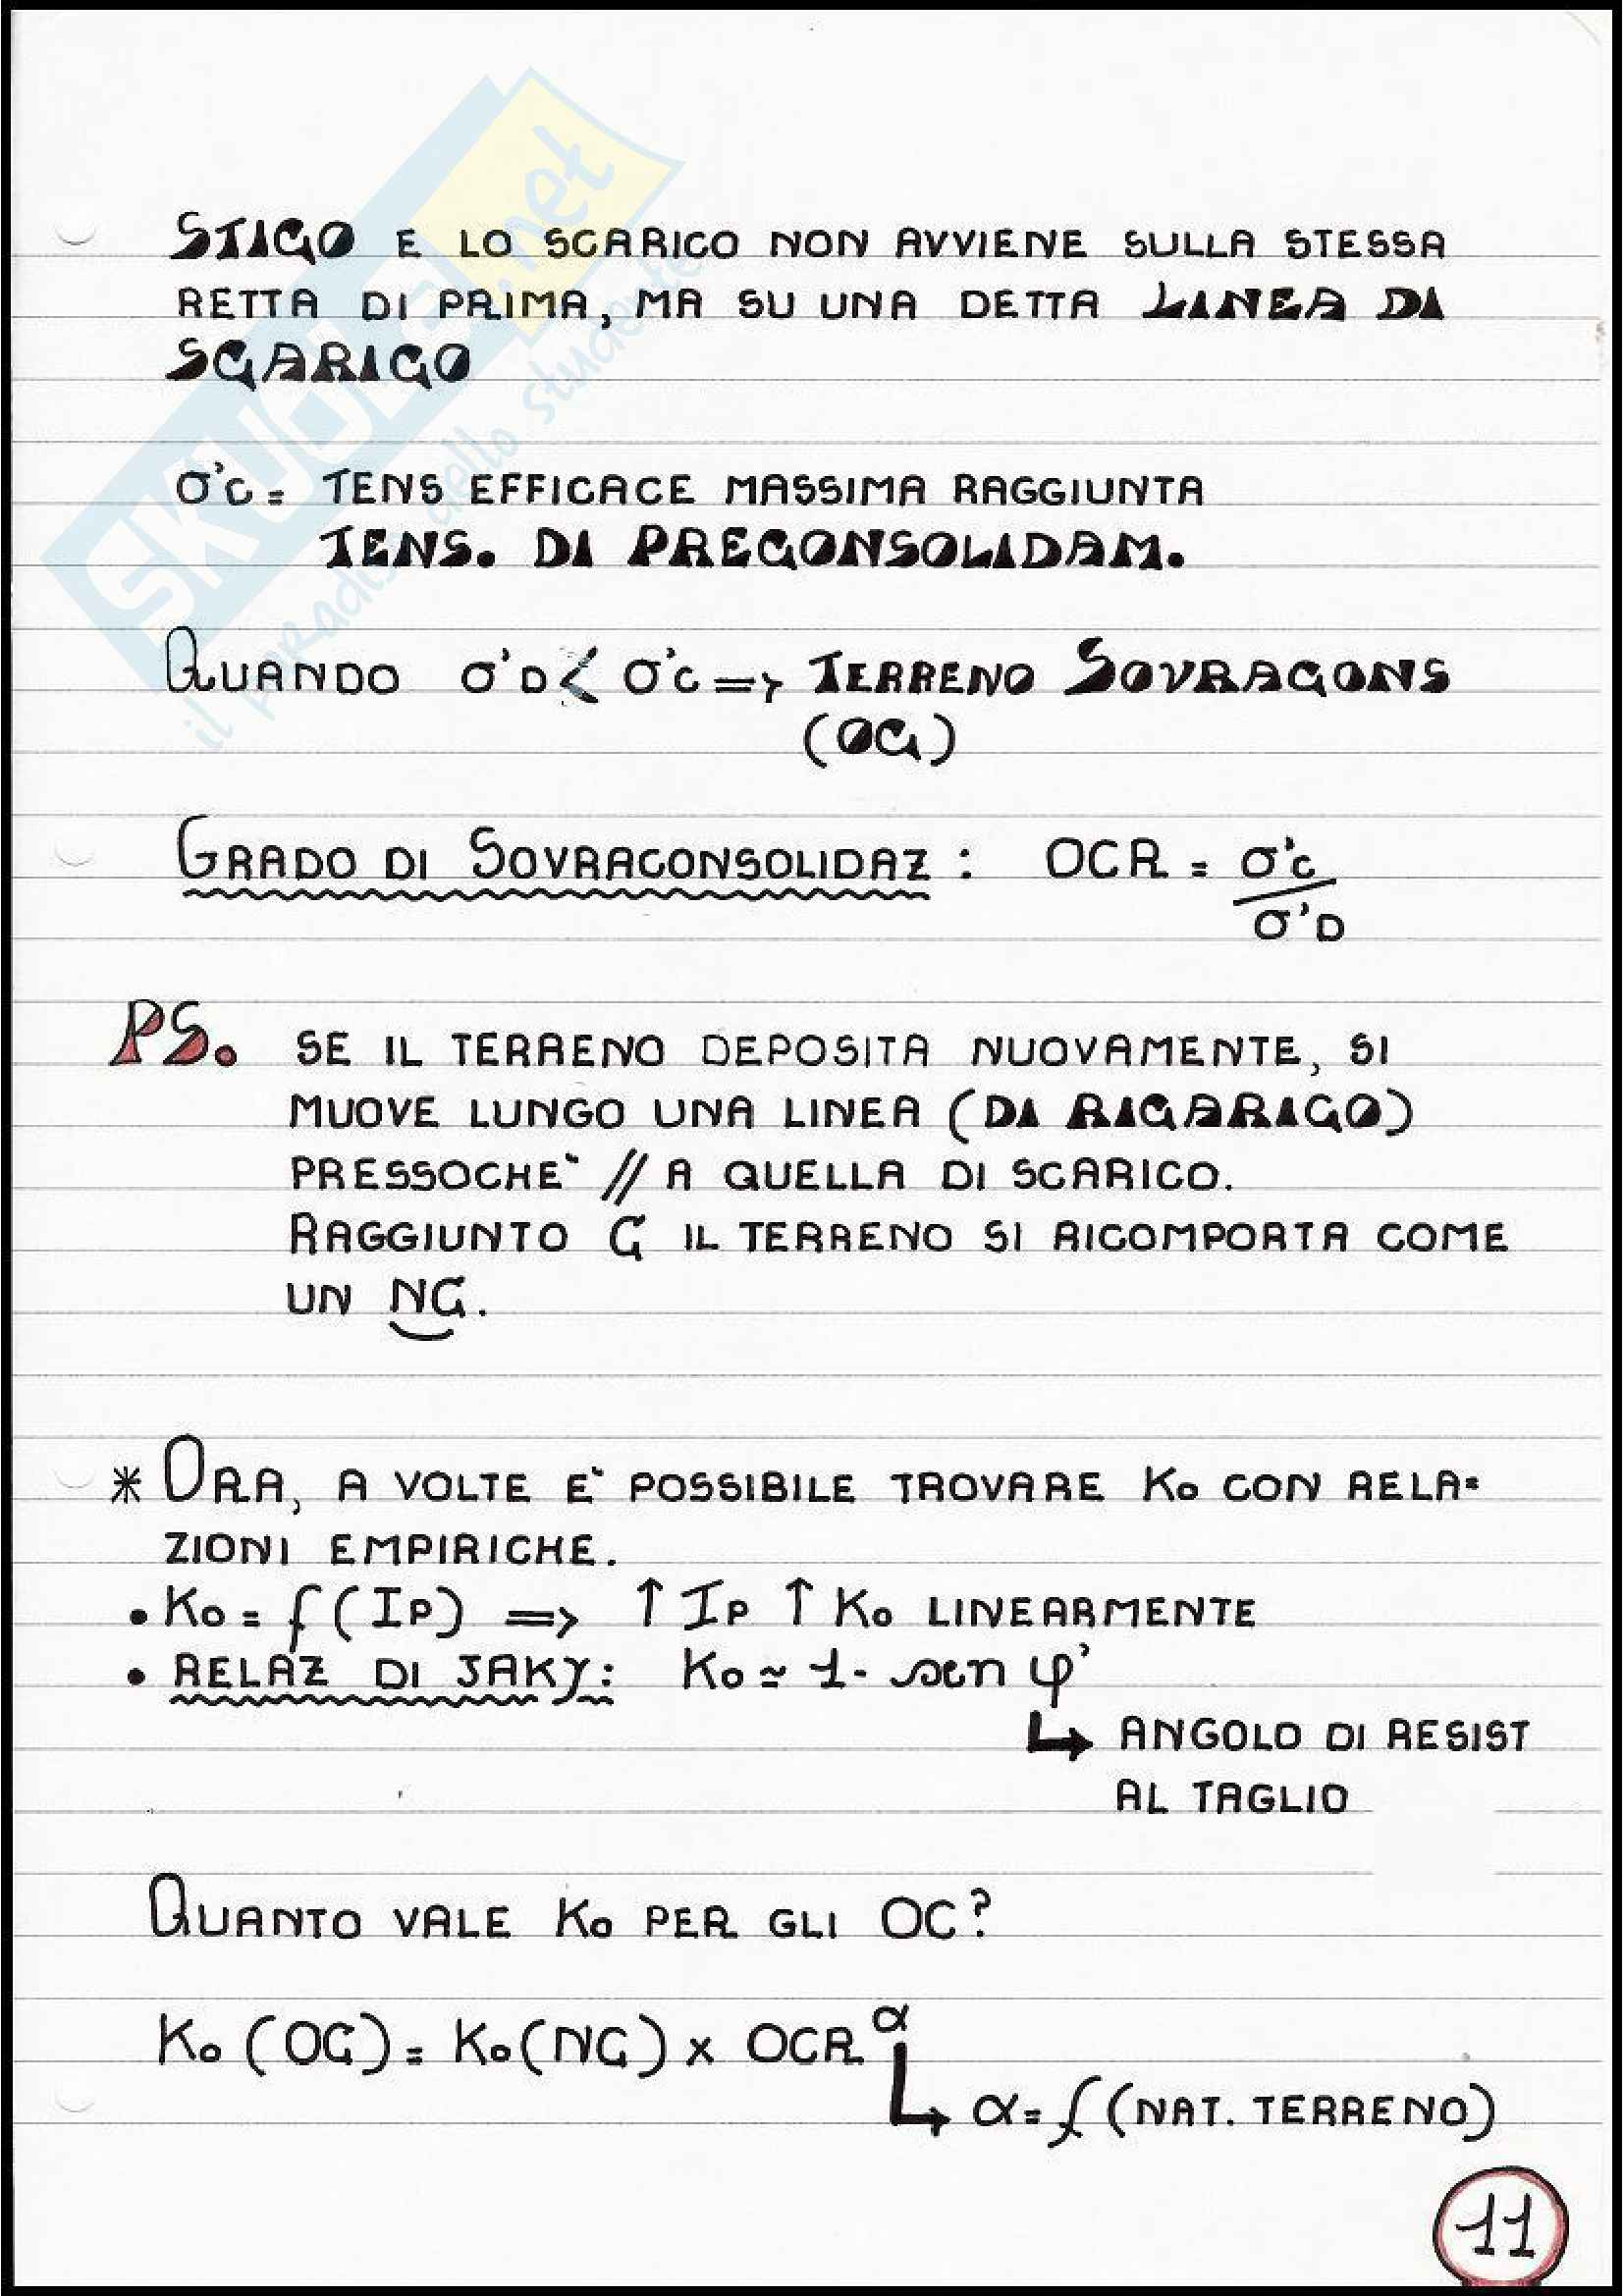 STICO E LO SCARICO NON AVVIENE SULLA STESSA
RETTA DI PRIMA, MA SU UNA DETTA LINEA DI
SCARICO
σ'c = TENS EFFICACE MASSIMA RAGGIUNTA
TENS. DI PRECONSOLIDAM.
QUANDO σ'D < σ'c => TERRENO SOVRACONS
(OC)
GRADO DI SOVRACONSOLIDAZ : OCR = σ'c
σ'D
PS. SE IL TERRENO DEPOSITA NUOVAMENTE, SI
MUOVE LUNGO UNA LINEA (DI RICARICO)
PRESSOCHE` // A QUELLA DI SCARICO.
RAGGIUNTO C IL TERRENO SI RICOMPORTA COME
UN NC.
* ORA, A VOLTE E` POSSIBILE TROVARE Ko CON RELA=
ZIONI EMPIRICHE.
• Ko = f (IP) => ↑ IP ↑ Ko LINEARMENTE
• RELAZ DI JAKY: Ko ≃ 1 - sen φ'
↳ ANGOLO DI RESIST
AL TAGLIO
QUANTO VALE Ko PER GLI OC?
Ko (OC) = Ko (NC) x OCR α
↳ α = f (NAT. TERRENO)
11
SKUOLA.net
il paradiso dello studente